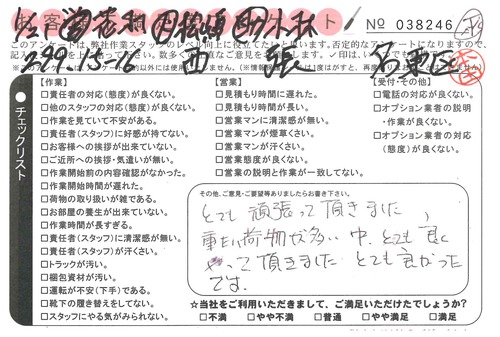 No 038246
このアンケートは、弊社作業スタッフのレベル向上に役立てたいと思います。否定的なアンケートになりますので、
【作業】
□責任者の対応(態度)が良くない。
□他のスタッフの対応(態度)が良くない。
□作業を見ていて不安がある。
□責任者(スタッフ)に好感が持てない。
□お客様への挨拶が出来ていない。
□ご近所への挨拶・気遣いが無い。
□作業開始前の内容確認がなかった。
□作業開始時間が遅れた。
□荷物の取り扱いが雑である。
□お部屋の養生が出来ていない。
□作業時間が長すぎる。
□責任者(スタッフ)に清潔感が無い。
□責任者(スタッフ)が汗くさい。
□トラックが汚い。
□梱包資材が汚い。
□運転が不安(下手)である。
□靴下の履き替えをしてない。
□スタッフにやる気が感じられない。
【営業】
□見積もり時間に遅れた。
□見積もり時間が長い。
□営業マンに清潔感が無い。
□営業マンが煙草くさい。
□営業マンが汗くさい。
□営業態度が良くない。
□営業の説明と作業が一致してない。
【受付・その他】
□電話の対応が良くない。
□オプション業者の説明
・作業が良くない。
□オプション業者の対応
(態度)が良くない。
チェックリスト
その他、ご意見・ご要望等ありましたらお書き下さい。
とても頑張って頂きました、
重たい荷物が多い中、とても良く
やって頂きました とても良かった
です。
☆当社をご利用いただきまして、ご満足いただけたでしょうか?
□不満 □やや不満 □普通 □やや満足 □満足